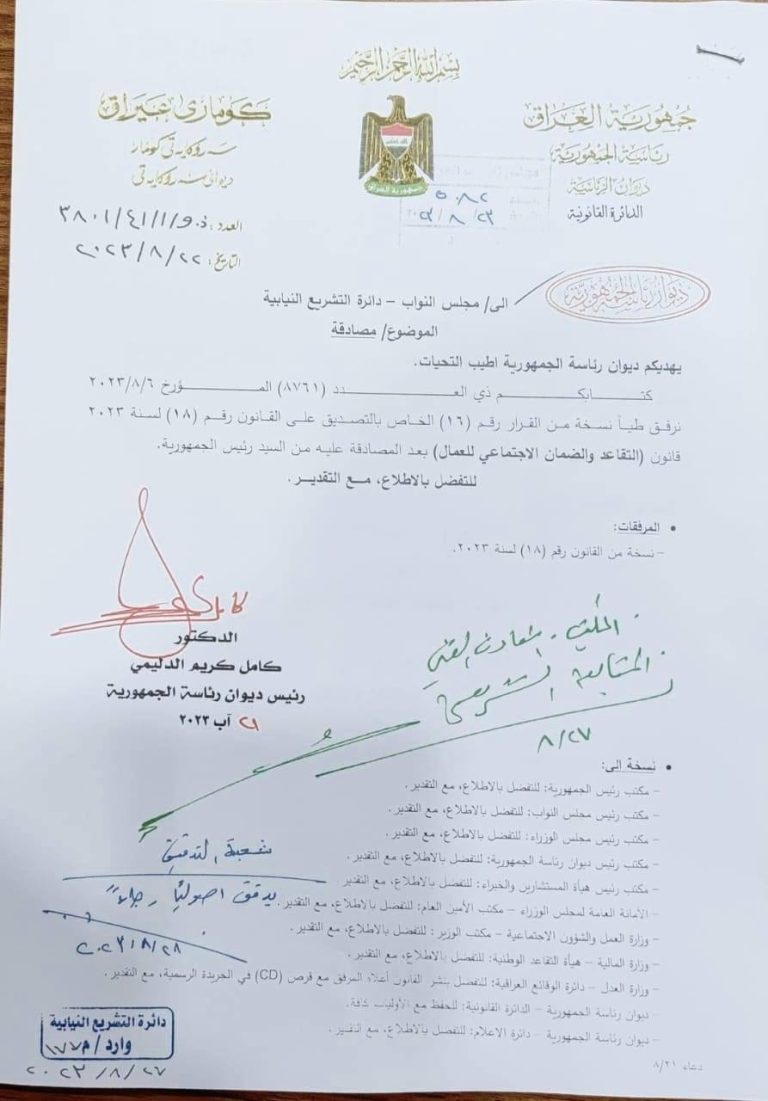 بسم الله الرحمن الرحيم
جمهورية العراق
رئاسة الجمهورية
ديوان الرئاسة
الدائرة القانونية
كۆماری عێراق
سەرۆکایەتی کۆمار
دیوانی سەرۆکایەتی
العدد: ذ.و/١/٤١/٣٨٠١
التاريخ: ٢٠٢٣/٨/٢٢
جمهورية العراق
٥٠٨٢
٢٠٢٣/٨/٢٣
ديوان رئاسة الجمهورية
الى/ مجلس النواب – دائرة التشريع النيابية
الموضوع/ مصادقة
يهديكم ديوان رئاسة الجمهورية اطيب التحيات.
كتابكم ذي العدد (٨٧٦١) المؤرخ ٢٠٢٣/٨/٦
نرفق طياً نسخة من القرار رقم (١٦) الخاص بالتصديق على القانون رقم (١٨) لسنة ٢٠٢٣
قانون (التقاعد والضمان الاجتماعي للعمال) بعد المصادقة عليه من السيد رئيس الجمهورية.
للتفضل بالاطلاع، مع التقدير.
• المرفقات:
– نسخة من القانون رقم (١٨) لسنة ٢٠٢٣.
الدكتور
كامل كريم الدليمي
رئيس ديوان رئاسة الجمهورية
٢١ آب ٢٠٢٣
٨/٢٧
• نسخة إلى:
– مكتب رئيس الجمهورية: للتفضل بالاطلاع، مع التقدير.
– مكتب رئيس مجلس النواب: للتفضل بالاطلاع، مع التقدير.
– مكتب رئيس مجلس الوزراء: للتفضل بالاطلاع، مع التقدير.
– مكتب رئيس ديوان رئاسة الجمهورية: للتفضل بالاطلاع، مع التقدير.
– مكتب رئيس هيأة المستشارين والخبراء: للتفضل بالاطلاع، مع التقدير.
– الأمانة العامة لمجلس الوزراء – مكتب الأمين العام: للتفضل بالاطلاع، مع التقدير.
– وزارة العمل والشؤون الاجتماعية – مكتب الوزير: للتفضل بالاطلاع، مع التقدير.
– وزارة المالية – هيأة التقاعد الوطنية: للتفضل بالاطلاع، مع التقدير.
– وزارة العدل – دائرة الوقائع العراقية: للتفضل بنشر القانون أعلاه المرفق مع قرص (CD) في الجريدة الرسمية، مع التقدير.
– ديوان رئاسة الجمهورية – الدائرة القانونية: للحفظ مع الأوليات كافة.
– ديوان رئاسة الجمهورية – دائرة الاعلام: للتفضل بالاطلاع، مع التقدير.
شعبة التدقيق
يدقق اصولياً رجاءً
٢٠٢٣/٨/٢٨
دائرة التشريع النيابية
وارد/م ١٧٧
٢٠٢٣/٨/٢٧
دعاء ٨/٢١